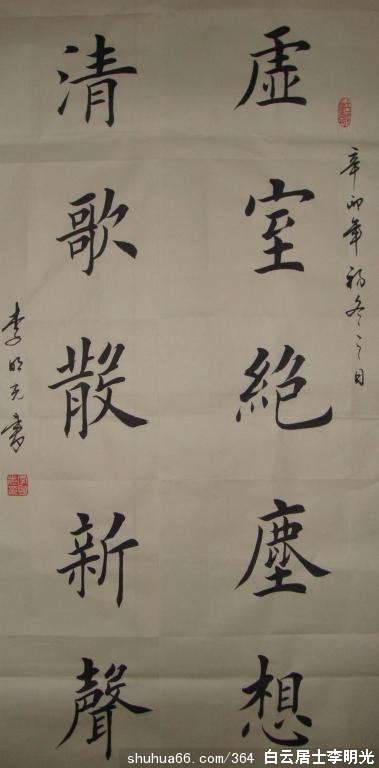 辛卯年初冬之日
虚室絶塵想
清歌散新聲
李明光書
shuhua66.com/364 白云居士李明光